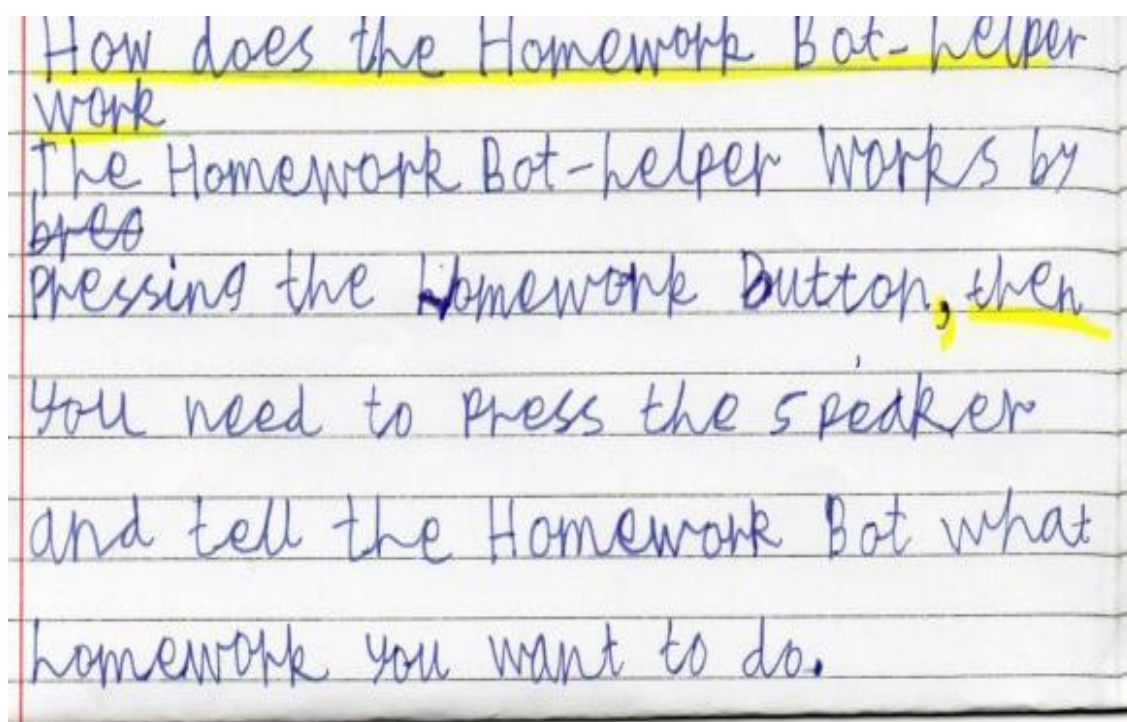 How does the Homework Bot-helper
work
The Homework Bot-helper works by
pressing the Homework Button, then
you need to press the speaker
and tell the Homework Bot what
homework you want to do.